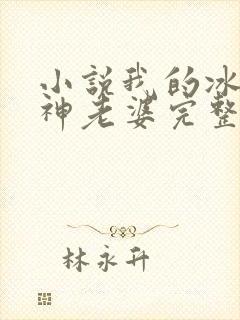 小説我的冰
神老婆完整
林永升